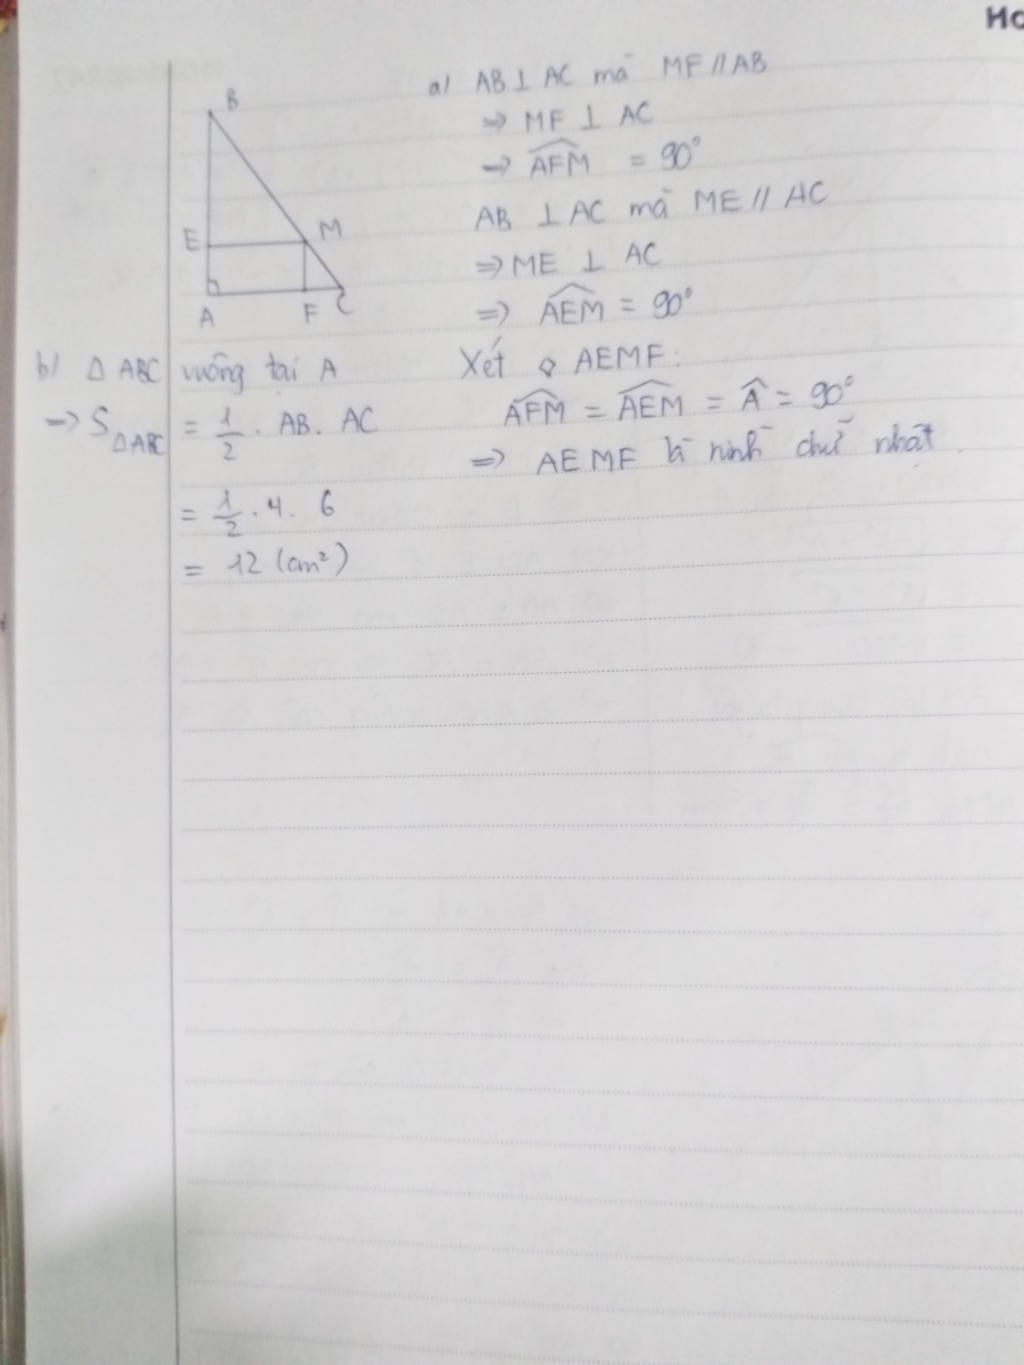 Ho
B
E
M
A
F
C
a) AB ⊥ AC mà MF // AB
=> MF ⊥ AC
=> AFM = 90°
AB ⊥ AC mà ME // AC
=> ME ⊥ AC
=> AEM = 90°
Xét ◊ AEMF:
AFM = AEM = A = 90°
=> AEMF là hình chữ nhật.
b) Δ ABC vuông tại A
=> S ΔABC = 1/2 . AB. AC
= 1/2 . 4. 6
= 12 (cm²)